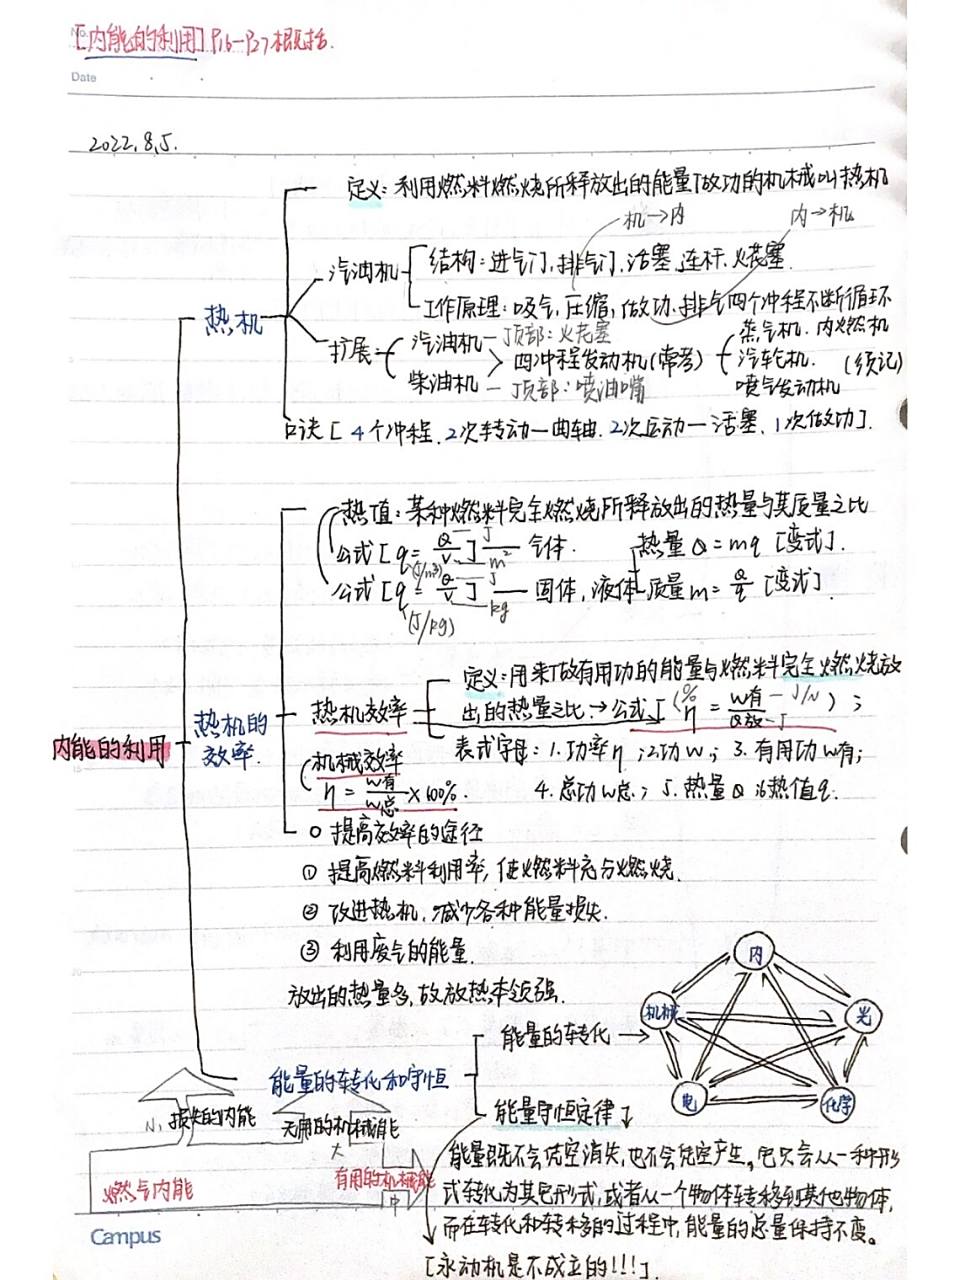 No.
[内能的利用] P16-P27概括.
Date
2022.8.5.
定义:利用燃料燃烧所释放出的能量做功的机械叫热机
机→内
内→机
汽油机
结构:进气门,排气门,活塞,连杆,火花塞.
工作原理:吸气,压缩,做功,排气四个冲程不断循环
热机
扩展
汽油机—顶部:火花塞
柴油机—顶部:喷油嘴
四冲程发动机(常考)
蒸气机.内燃机
汽轮机.
喷气发动机
(须记)
口诀[4个冲程.2次转动—曲轴.2次运动—活塞、1次做功].
热值:某种燃料完全燃烧所释放出的热量与其质量之比
公式[q=Q/V] J/m² 气体.
(J/m3)
热量Q=mq [变式].
公式[q=Q/V] J/kg 固体,液体
质量m=Q/q [变式].
(J/kg)
热机的
效率.
热机效率
定义:用来做有用功的能量与燃料完全燃烧放
出的热量之比.→公式[(% η=W有/Q放 — J/N — J);
表式字母:1.功率η;2功W;3.有用功W有;
4.总功W总;5.热量Q 6热值q.
机械效率
η=W有/W总×100%.
内能的利用
提高效率的途径
① 提高燃料利用率,使燃料充分燃烧.
② 改进热机,减少各种能量损失.
③ 利用废气的能量.
放出的热量多,故放热本领强.
能量的转化和守恒
能量的转化→
内
机械
光
电
化学
能量守恒定律↓
能量既不会凭空消失,也不会凭空产生。它只会从一种形
式转化为其它形式,或者从一个物体转移到其他物体,
而在转化和转移的过程中,能量的总量保持不变。
[永动机是不成立的!!!].
小
损失的内能
无用的机械能
大
燃气内能
有用的机械能
中
Campus